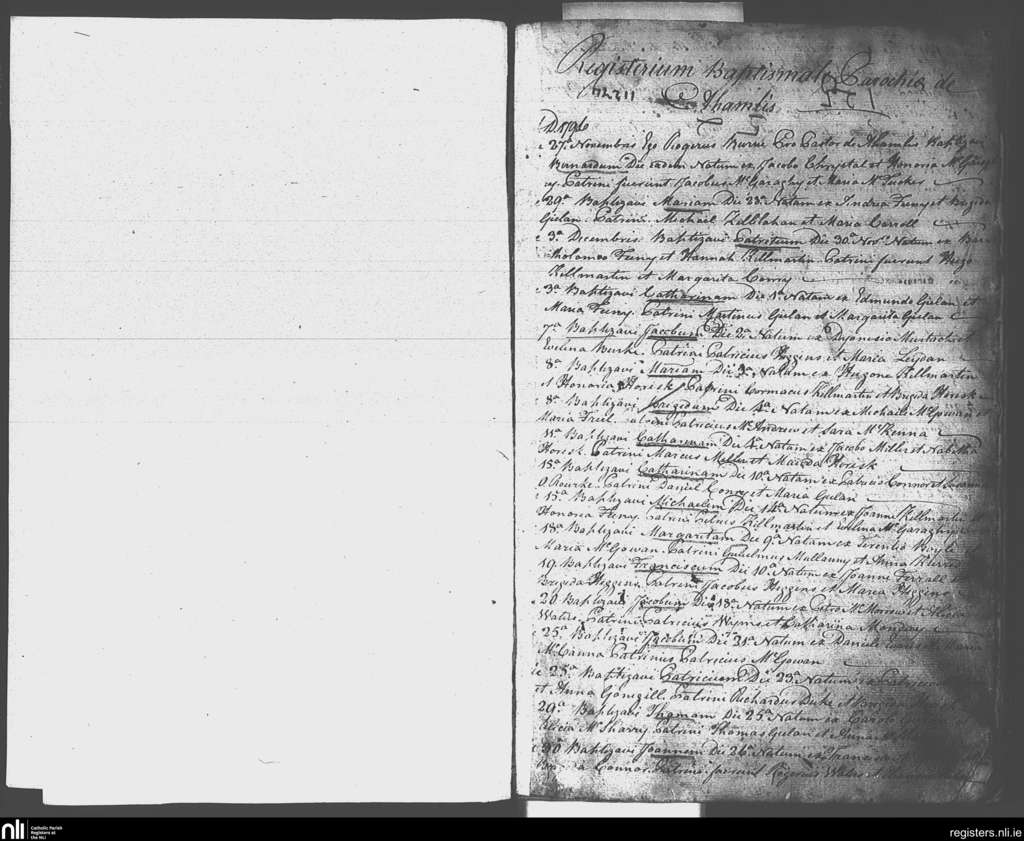 Registerium Baptismale Parochia de
Ahamlis
D 1796
27.a Novembris Ego Rogerus Burne Pro Pastor de Ahamlis Baptizavi
Bernardum Die eadem Natum ex Jacobo Chrystal et Honoria McGarag
y. Patrini fuerunt Jacobus McGaraghy et Maria McTucker
29.a Baptizavi Mariam Die 28.a Natam ex Andrea Feeny et Brigida
Gielan. Patrini Michael Killblahan et Maria Carroll
3.a Decembris Baptizavi Patritium Die 30.a Nov.s Natum ex Bar
tholomeo Feeny et Hannah Killmartin Patrini fuerunt Hugo
Killmartin et Margarita Conry
3.a Baptizavi Catharinam Die 1.a Natam ex Edmundo Gielan et
Maria Feeny. Patrini Martinus Gielan et Margarita Gielan
7.a Baptizavi Jacobum Die 2.a Natum ex Dyonesio et
Evelina Burke. Patrini Patricius Higgins et Maria Leydan
8.a Baptizavi Mariam Die 3.a Natam ex Hugone Killmartin
et Honoria Horisk Patrini Cormacus Killmartin et Brigida Horisk
8.a Baptizavi Brigidam Die 4.a Natam ex Michaele McGowan et
Maria Friel. Patrini Patricius McAndrew et Sara McKenna
11.a Baptizavi Catharinam Die Natam ex Jacobo Miller et
Horisk. Patrini Marcus Miller et Horisk
15.a Baptizavi Catharinam Die 10.a Natam ex Patricio Connor et
O Rourke. Patrini Daniel Conry et Maria Gielan
15.a Baptizavi Michaelem Die 14.a Natum ex Joanne Killmartin et
Honoria Feeny. Patrini Killmartin et Evelina McGaraghy
18.a Baptizavi Margaritam Die 9.a Natam ex Terentio Boyle et
Maria McGowan. Patrini Gulielmus Mullauny et Anna
19. Baptizavi Franciscum Die 10.a Natum ex Joanne Ferrall et
Brigida Higgins. Patrini Jacobus Higgins et Maria Higgins
20. Baptizavi Jacobum Die 18.a Natum ex Petro McMorrow et
Waters. Patrini Patricius Wyms et Catharina Monday
25.a Baptizavi Jacobum Die 21.a Natum ex Daniele et Maria
McCanna Patrinus Patricius McGowan
25.a Baptizavi Patricium Die 23.a Natum ex
et Anna Gonigill. Patrini Richardus Duke et Brigida
29.a Baptizavi Thomam Die 25.a Natum ex Carolo
Alicia McSharry Patrini Thomas Gielan et Anna
30 Baptizavi Joannem Die 26.a Natum ex
Connor. Patrini fuerunt Rogerus Waters et
nli
Catholic Parish
Registers at
the NLI
registers.nli.ie